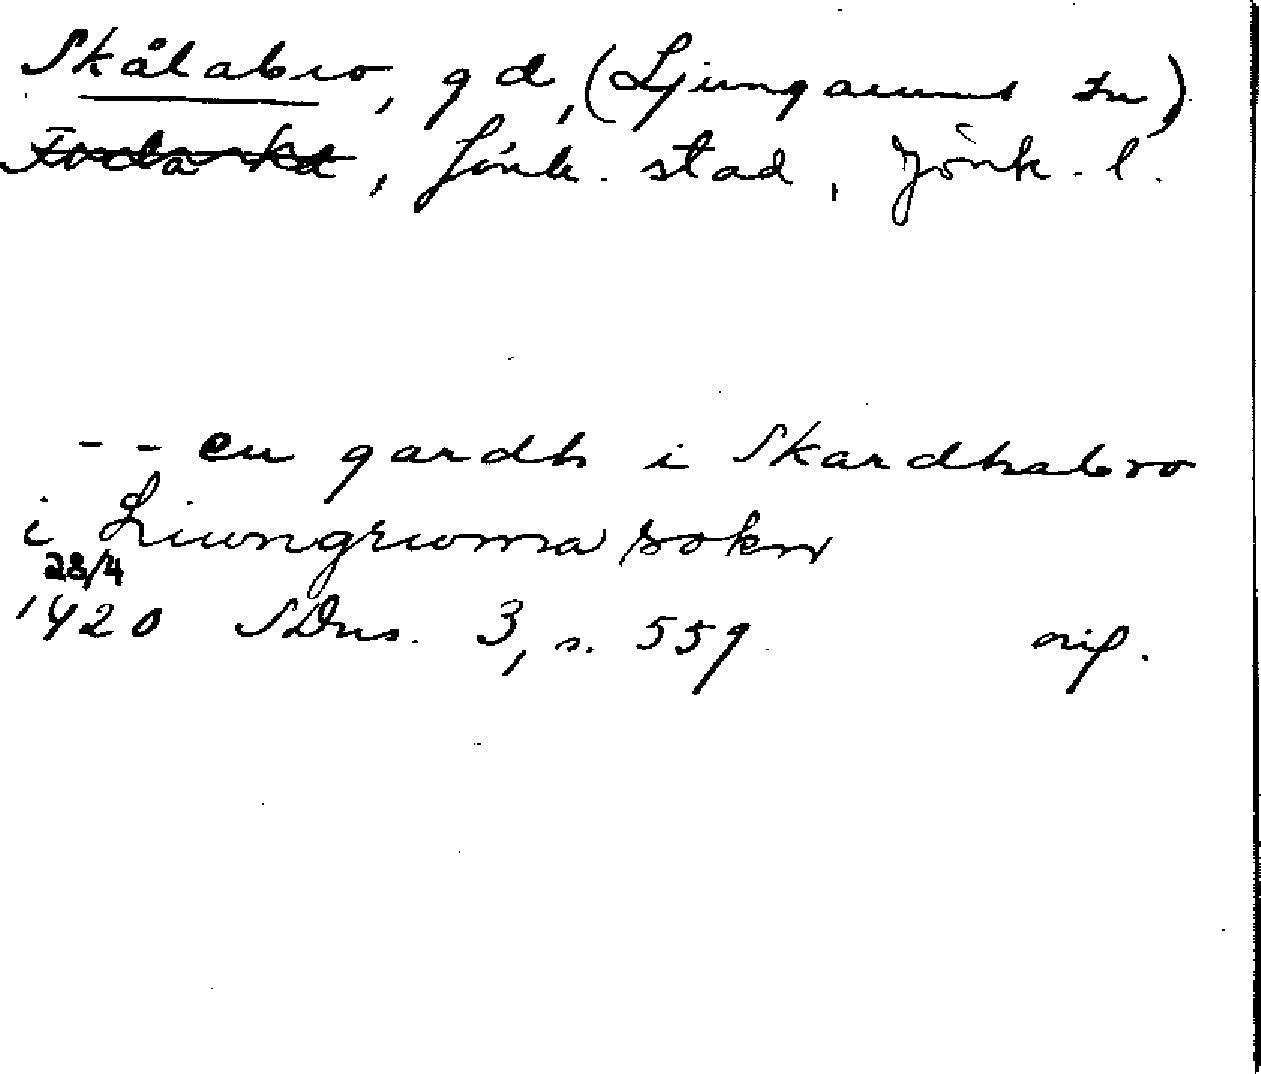 Skålabro, gd, (Ljungarums sn)
Tveta hd, Jönk. stad, Jönk. l.
- - en gardh i Skardhabro
i Liwngrwma sokn
28/4
1420 SDns. 3, s. 559 avf.